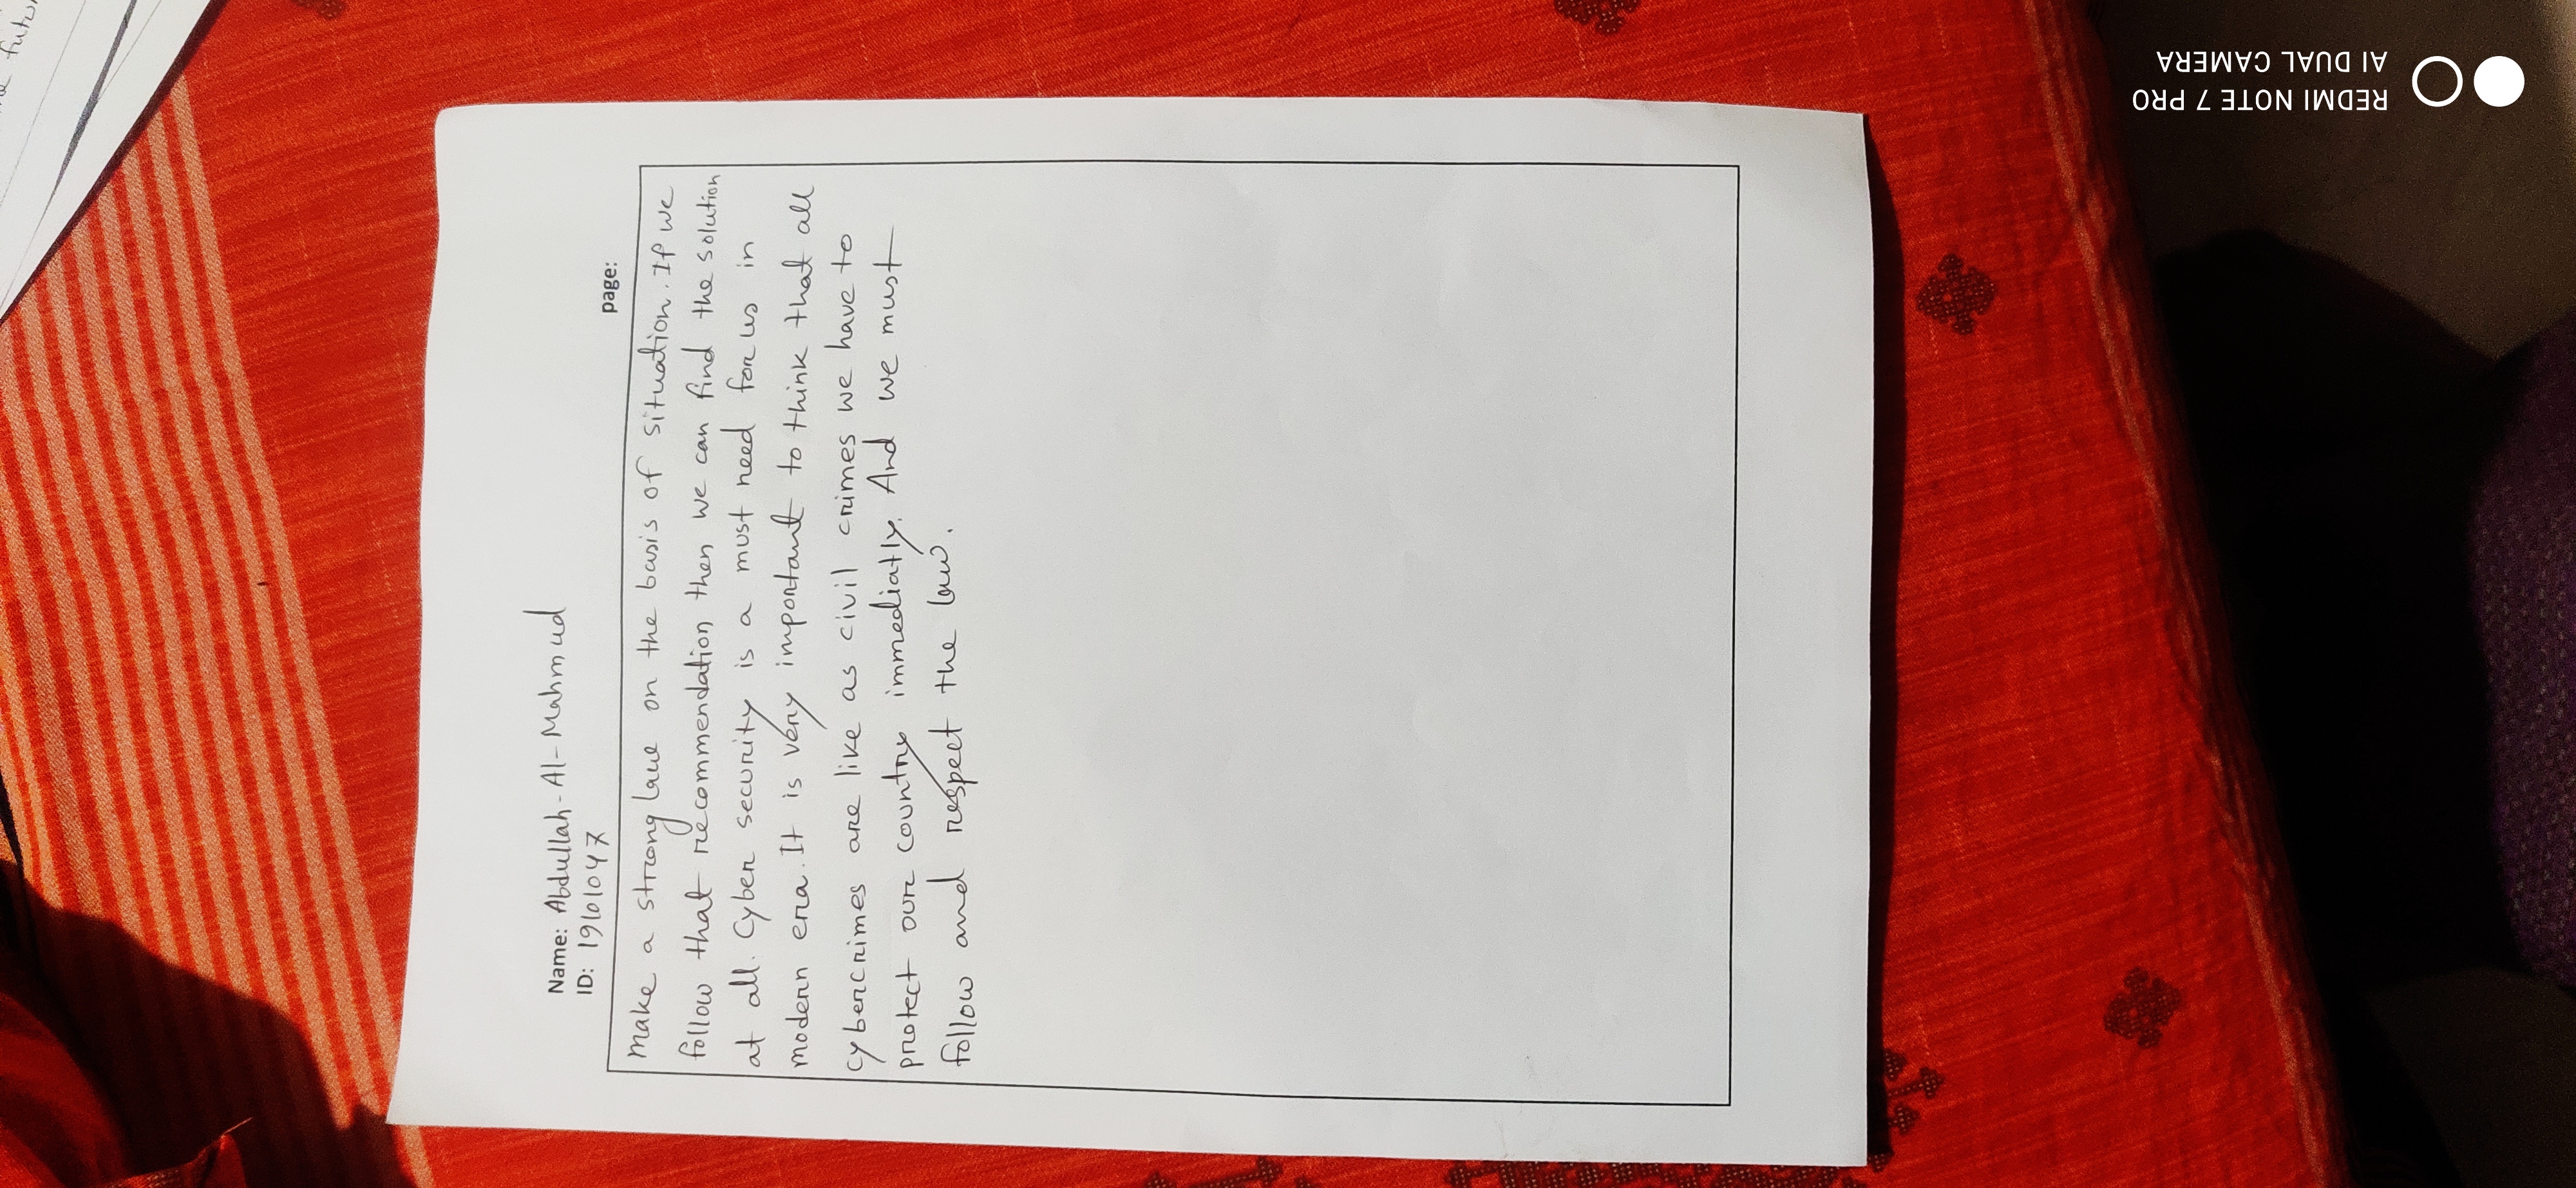 Name: Abdullah-Al-Mahmud
ID: 19101047
page:
make a strong law on the basis of situation. If we
follow that recommendation then we can find the solution
at all. Cyber security is a must need for us in
modern era. It is very important to think that all
cybercrimes are like as civil crimes we have to
protect our country immediatly. And we must
follow and respect the law.
REDMI NOTE 7 PRO
AI DUAL CAMERA